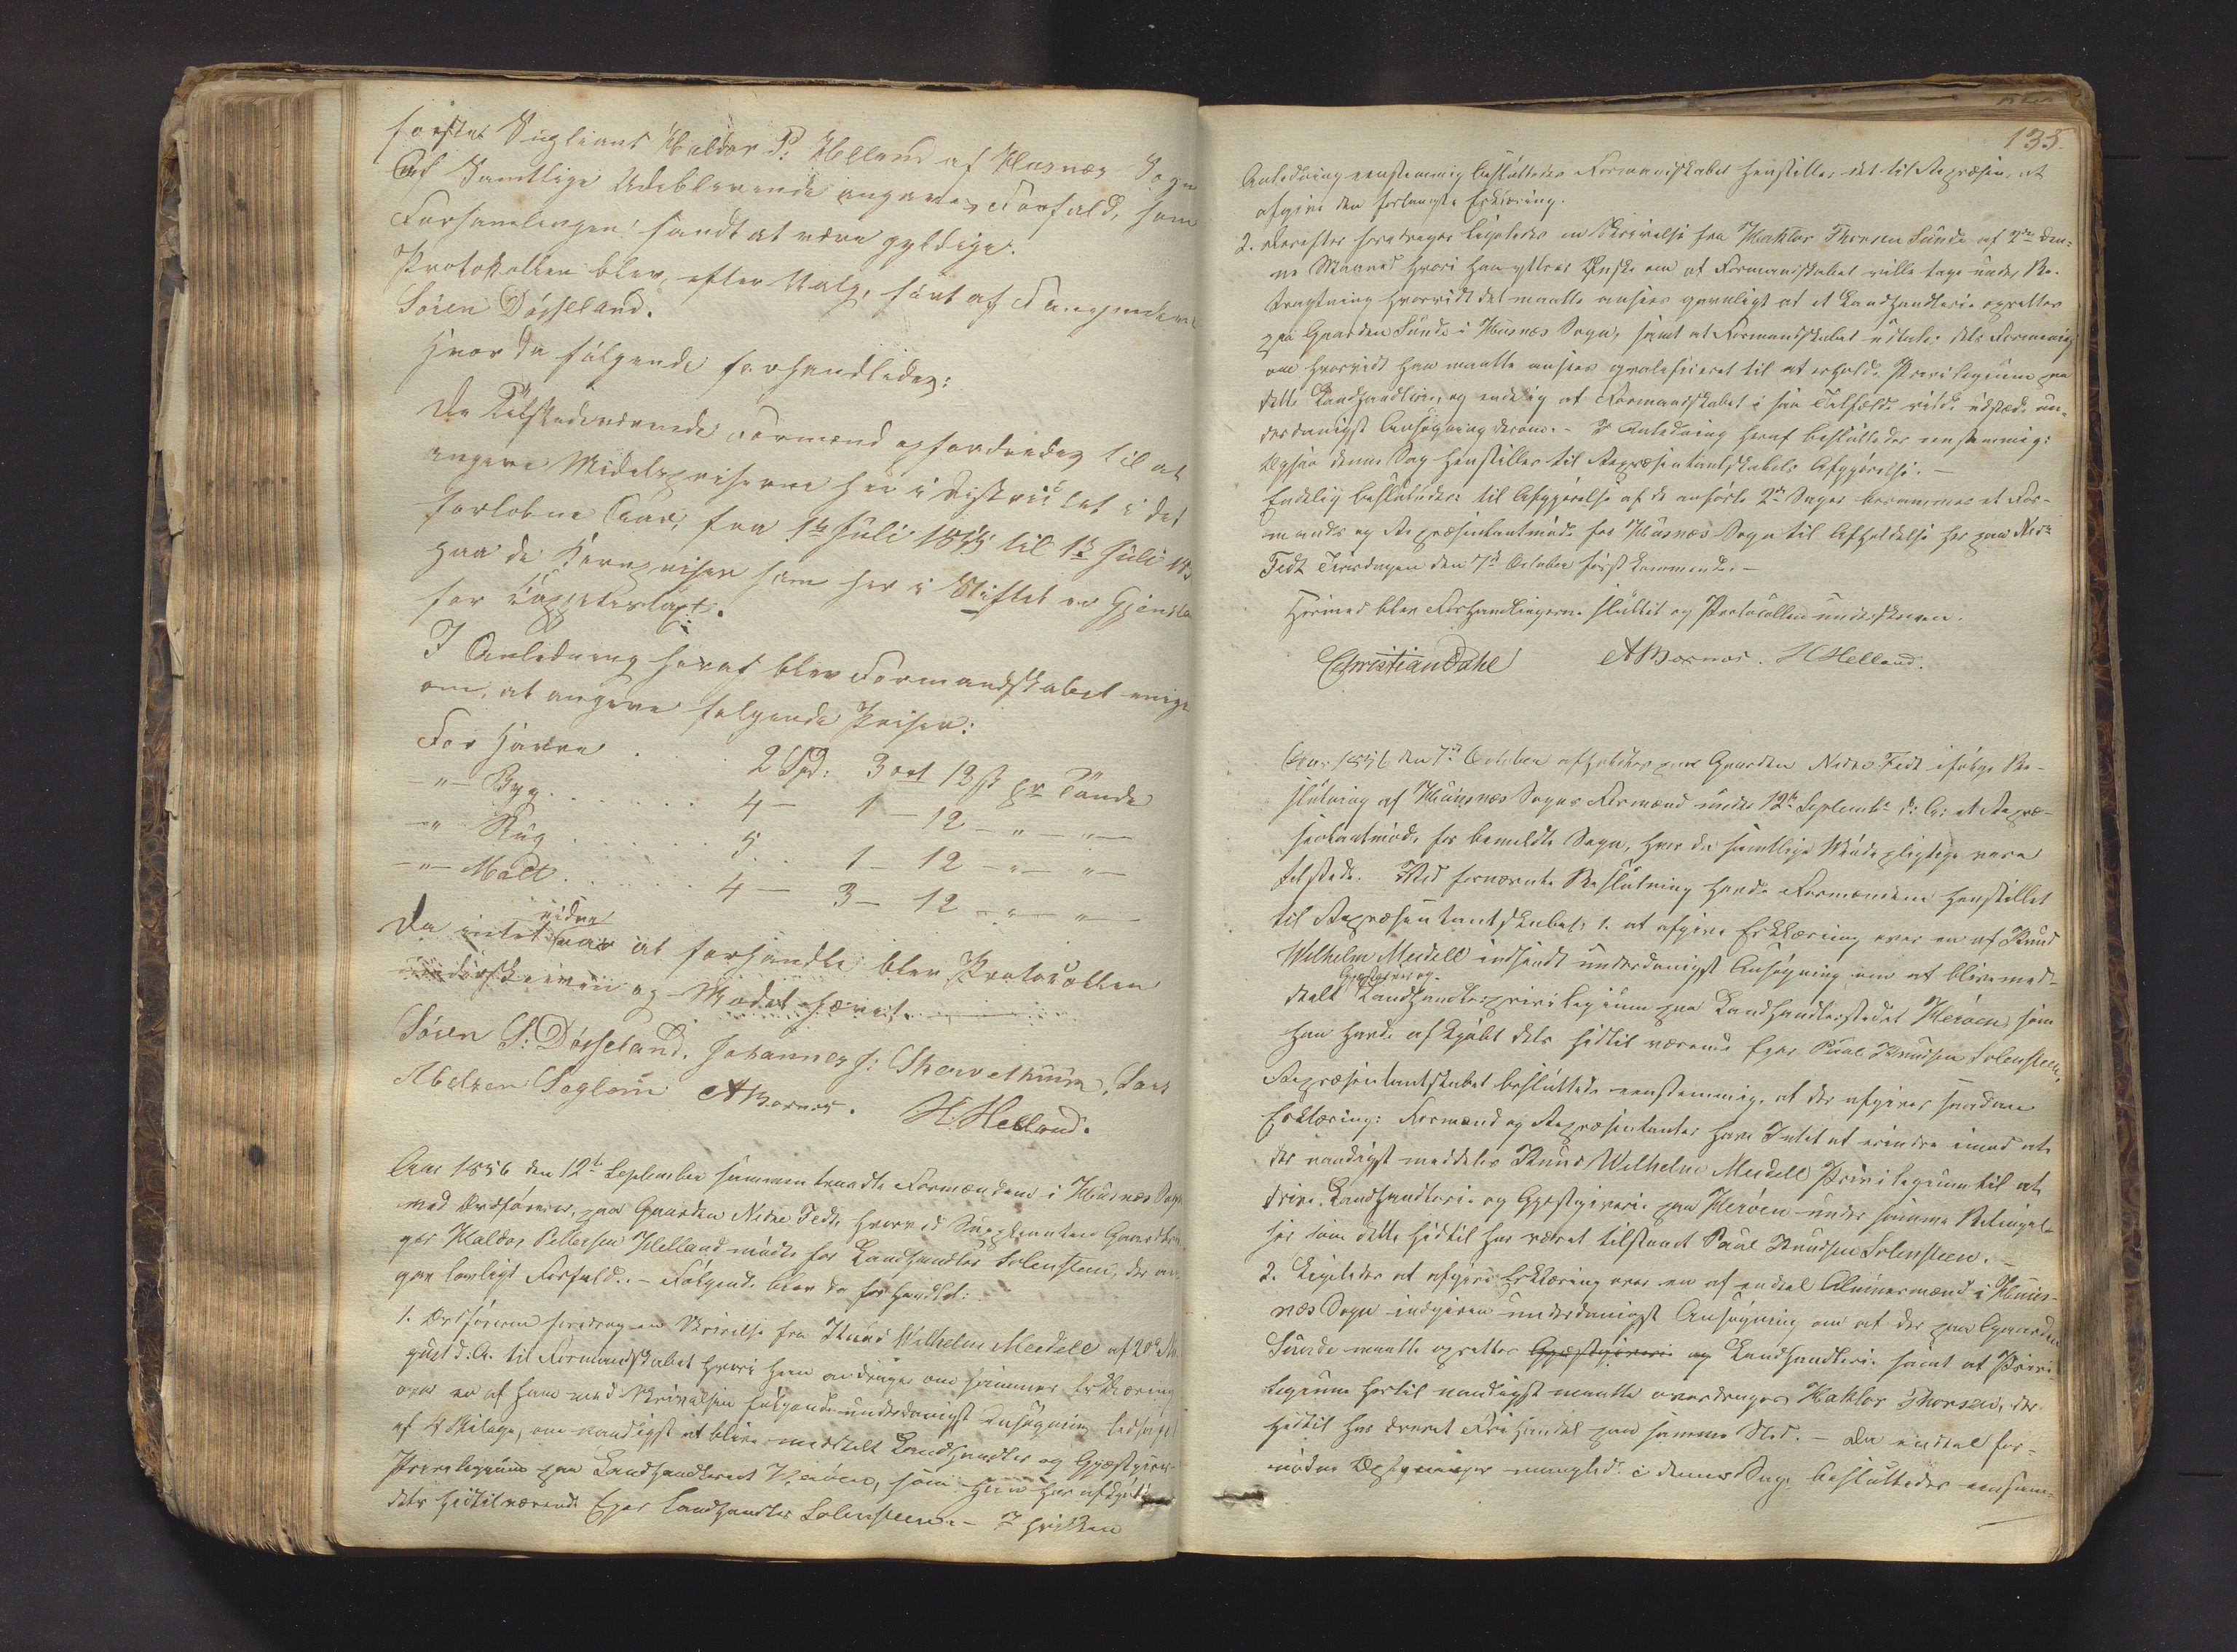 første Supleant Haldor P. Helland af Husnæs Sogn
Af Samtlige Udeblevende angaves Forfald, som
Forsamlingen fandt at være gyldige.
Protokollen blev, efter Valg, ført af
Søren Døsseland.
Hvor da følgende forhandledes:
De Tilstedeværende Formænd opfordredes til at
angive Middelpriserne her i Districtet i det
forløbne Aar, fra 1te Juli 1855 til 1te Juli
paa de Kornpriser som her i Stiftet er Gjenstand
for Capitelstaxt.
I Anledning heraf blev Formandskabet enige
om, at angive følgende Priser:
For Havre . . . 2 Spd: 3 ort 12 ß pr Tønde
-"- Byg . . . . . . 4 - 1 - 12 - " - " -
-"- Rug . . . . . . 5 . . 1 - 12 - " - " -
-"- Malt . . . . . . 4 - 3 - 12 - " - " -
Da intet videre var at forhandle blev Protocollen
underskreven og Mødet hævet.
Søren S: Døsseland. Johannes J: Lars
Abelsen Seglem ABornæs. H. Helland.
Aar 1856 den 12te September sammentraadte Formændene i Husnæs Sogn
med Ordføreren, paa Gaarden Nedre Fedt, hvorved Suppleanten Gaardbru-
ger Haldor Pettersen Helland mødte for Landhandler Solensteen, der an-
gav lovligt Forfald. - Følgende blev da forhandlet:
1. Ordføreren foredrog en Skrivelse fra Knud Wilhelm Meidell af 20de Au-
gust d: A. til Formandskabet hvori han andrager om sammes Erklæring
over en af ham med Skrivelsen følgende underdanigst Ansøgning ledsaget
af 4 Bilage, om naadigst at blive meddelt Landhandler og Gjæstgiver-
Privilegium paa Landhandleriet Herøen, som han har afkjøbt
dets hidtilværende Eier Landhandler Solensteen. - I hvilken
135.
Anledning eenstemmig besluttedes Formandskabet henstiller det til Repræsen. at
afgive den forlangte Erklæring.
2. Derefter foredroges ligeledes en Skrivelse fra Haktor Thorsen Sunde af 2den den-
ne Maaned hvori han yttrer Ønske om at Formandskabet ville tage under Be-
tragtning hvorvidt det maatte ansees gavnligt at et Landhandleri oprettes
paa Gaarden Sunde i Husnæs Sogn, samt at Formandskabet udtaler dets Formening
om hvorvidt han maatte ansees qvalificeret til at erholde Privilegium paa
dette Landhandleri, og endelig at Formandskabet i saa Tilfælde vilde udstede un-
derdanigst Ansøgning derom. - I Anledning heraf besluttedes eenstemmig:
Ogsaa denne Sag henstilles til Repræsentantskabets Afgjørelse. -
Endelig besluttedes: til Afgjørelse af de anførte 2de Sager berammes et For-
mands og Repræsentantmøde for Husnæs Sogn til Afholdelse her paa Nedre
Fedt Tirsdagen den 7de October førstkommende. -
Hermed blev Forhandlingerne sluttet og Protocollen underskreven.
Christian Dahl ABornæs. H Helland.
Aar 1856 den 7de October afholdtes paa Gaarden Nedre Fedt ifølge Be-
slutning af Huusnæs Sogns Formænd under 12te Septembr d: A: et Repræ-
sentantmøde for bemeldte Sogn, hvor da samtlige Mødepligtige vare
tilstede. Ved fornævnte Beslutning havde Formændene henstillet
til Repræsentantskabet, 1. at afgive Erklæring over en af Knud
Wilhelm Meidell indsendt underdanigst Ansøgning om at blive med-
delt Gjæstgiver og Landhandlerprivilegium paa Landhandlerstedet Herøen, som
han havde afkjøbt dets hidtil værende Eier Paul Knudsen Solensteen.
Repræsentantskabet besluttede eenstemmig, at der afgives saadan
Erklæring: Formænd og Repræsentanter have Intet at erindre imod at
der naadigst meddeles Knud Wilhelm Meidell Privilegium til at
drive Landhandleri og Gjæstgiveri paa Herøen under samme Betingel-
ser som dette hidtil har været tilstaaet Paul Knudsen Solensteen. -
2. Ligeledes at afgive Erklæring over en af endeel Almuesmænd i Huus-
næs Sogn indgiven underdanigst Ansøgning om at der paa Gaarden
Sunde maatte oprettes Gjæstgiveri og Landhandleri samt at Privi-
legium hertil naadigst maatte overdrages Haktor Thorsen, der
hidtil har drevet Frihandel paa samme Sted. - Da endeel for-
nødne Oplysninger manglede i denne Sag, besluttedes eenstem-